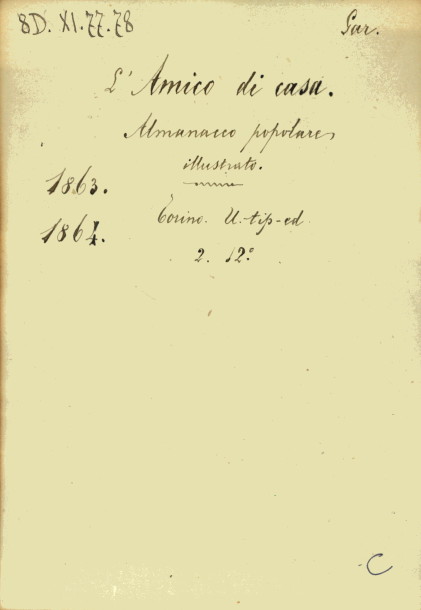 8D. XI. 77. 78
Gar.
L' Amico di casa.
Almanacco popolare
illustrato.
1863.
Torino. U. tip-ed
1864.
2. 12°
C